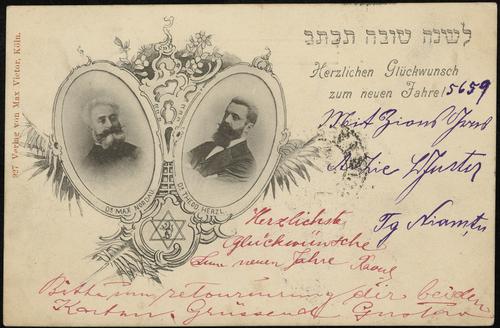 לשנה טובה תכתב
Herzlichen Glückwunsch
zum neuen Jahre! 5659
Mit Zions
Tg Niamtu
927 Verlag von Max Victor, Köln.
Dr MAX NORDAU
Dr THEOD. HERZL.
Herzlichste
Glückwünsche
zum neuen Jahre Raoul
Bitte um retournung der beiden
Karten. Grüssend Gustav